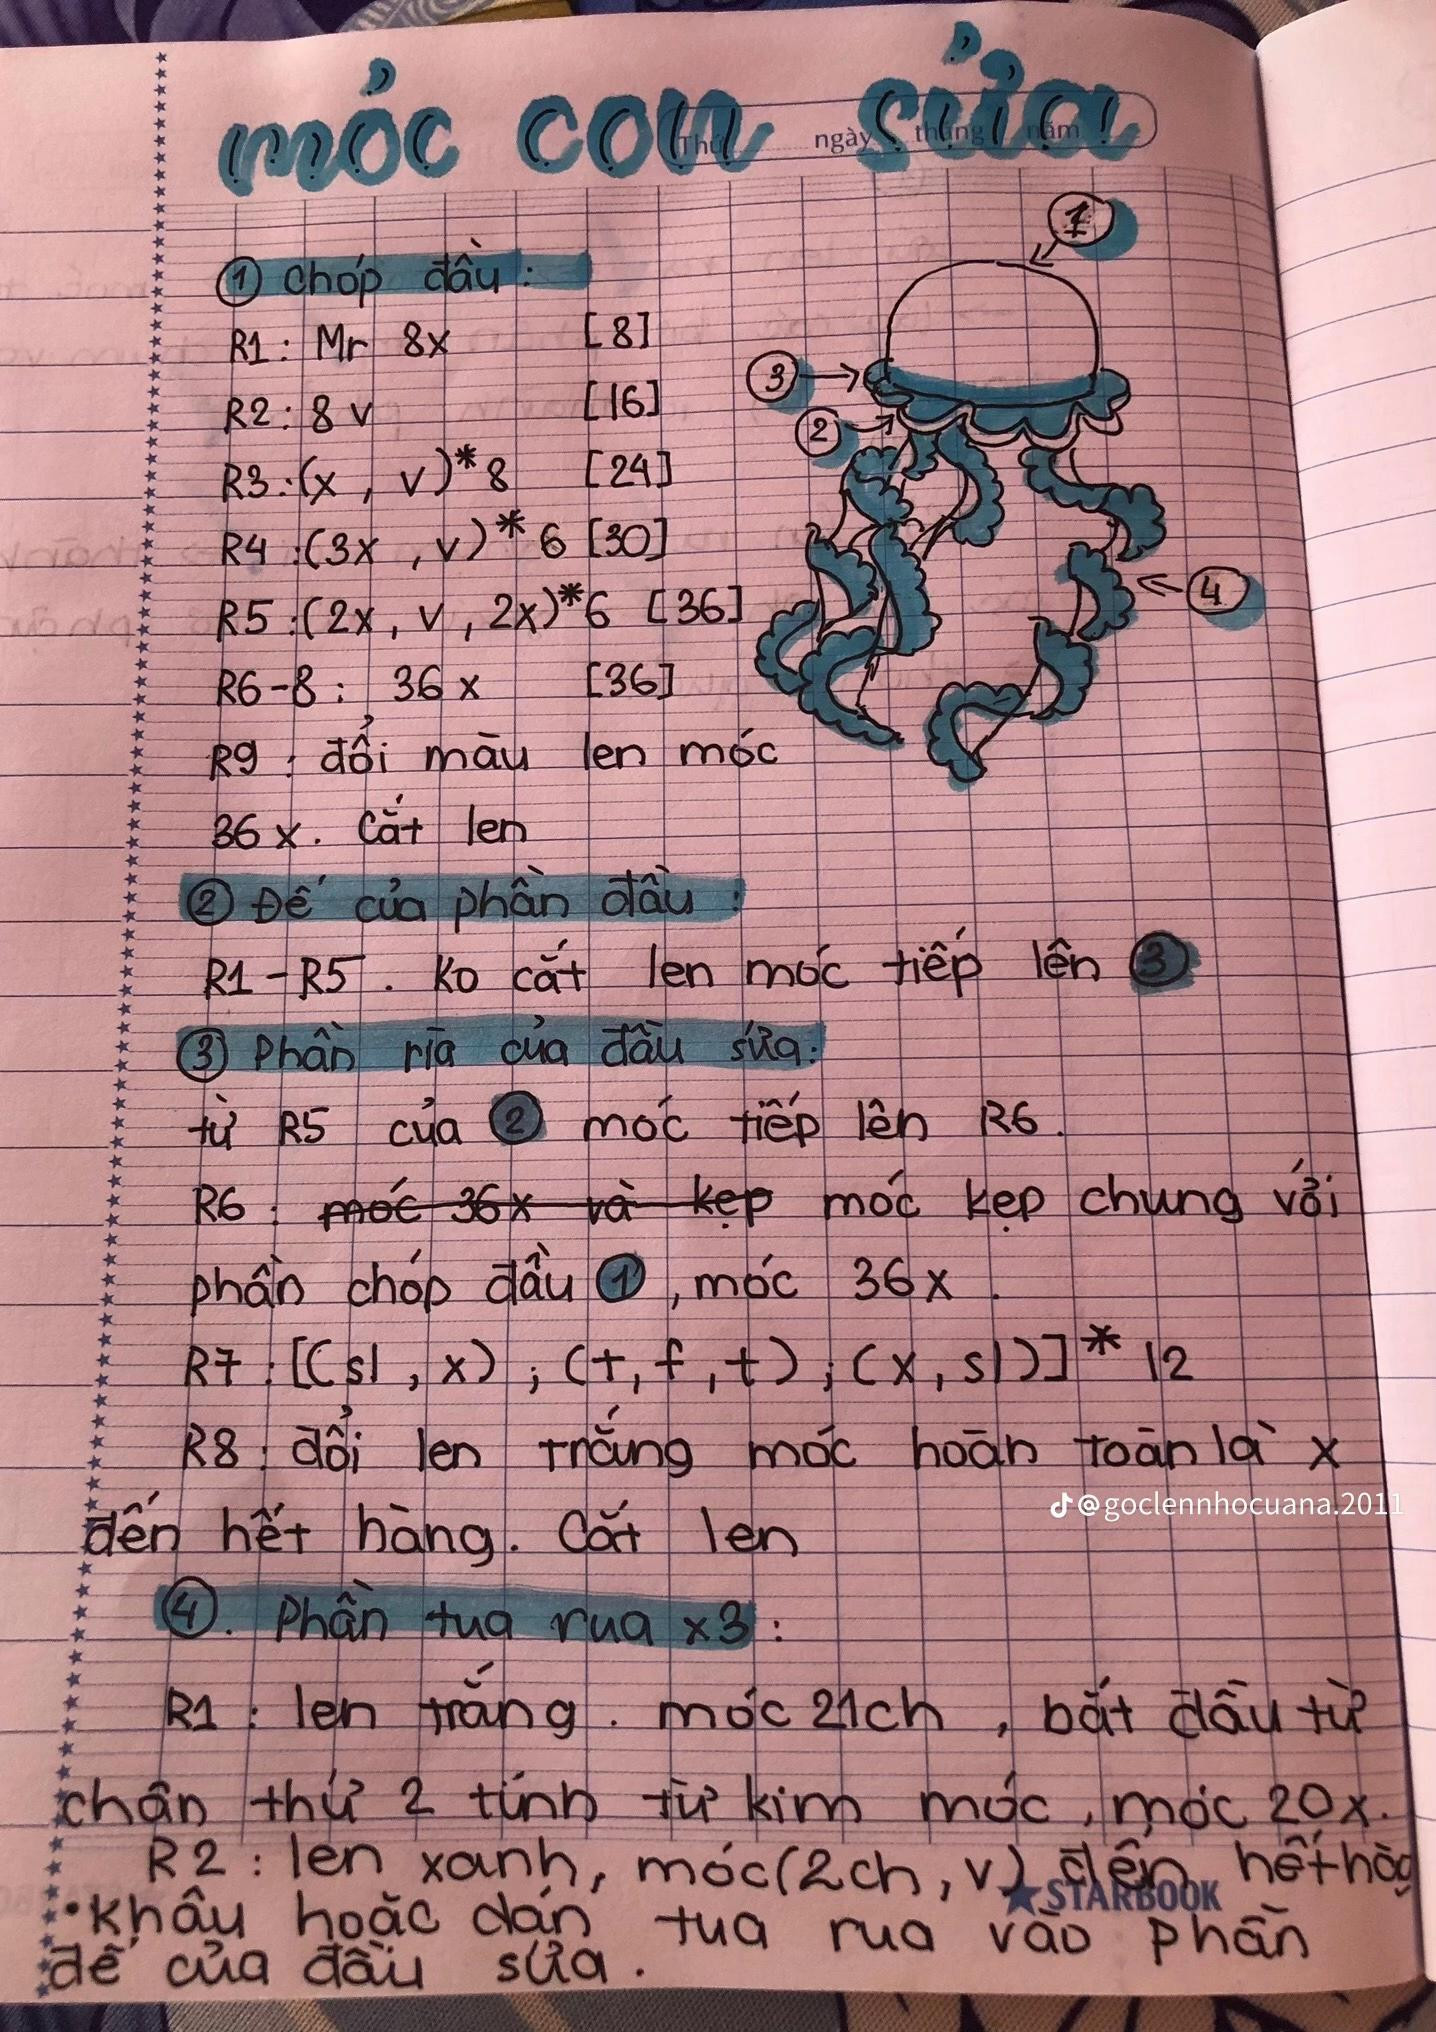 móc con sứa
Thứ ngày tháng năm
① chóp đầu :
R1 : Mr 8x [8]
R2 : 8 v [16]
R3 :(x , v)* 8 [24]
R4 :(3x , v)* 6 [30]
R5 :(2x, v, 2x)*6 [36]
R6-8 : 36 x [36]
R9 : đổi màu len móc
36 x. Cắt len
② Đế của phần đầu :
R1 - R5 . Ko cắt len móc tiếp lên ③
③ Phần rìa của đầu sứa:
từ R5 của ② móc tiếp lên R6.
R6 : móc 36x và kẹp móc kẹp chung với
phần chóp đầu ①, móc 36x .
R7 :[(sl , x) ; (t, f , t) ; (x , sl)]* 12
R8 : đổi len trắng móc hoàn toàn là x
đến hết hàng. Cắt len
④. Phần tua rua x3 :
R1 : len trắng . móc 21ch , bắt đầu từ
chân thứ 2 tính từ kim móc, móc 20x.
R2 : len xanh, móc(2ch, v) đến hết hàg
• Khâu hoặc dán tua rua vào phần
đế của đầu sứa .
1
3
2
4
@goclennhocuana.2011
STARBOOK